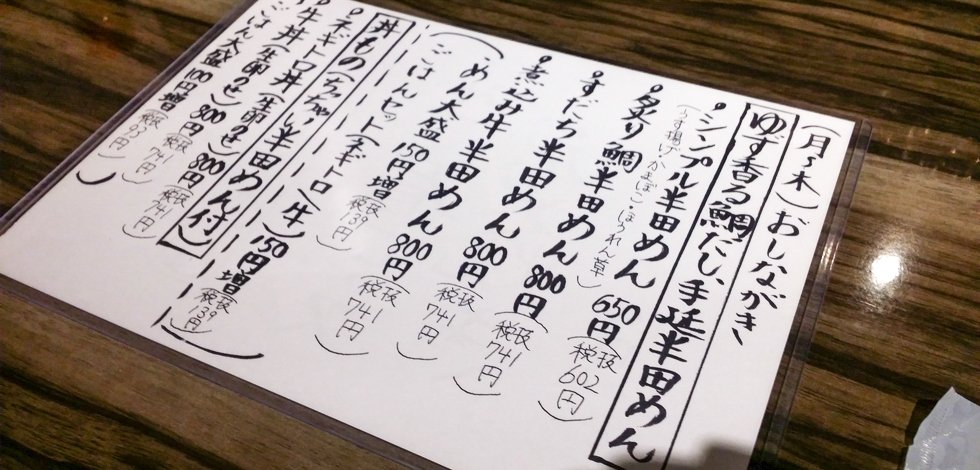 (月〜木) おしながき
ゆず香る鯛だし、手延半田めん
シンプル半田めん 650円(税抜602円)
(うす揚げ・かまぼこ・ほうれん草)
炙り鯛半田めん 800円(税抜741円)
すだち半田めん 800円(税抜741円)
煮込み牛半田めん 800円(税抜741円)
(めん大盛 150円増(税抜139円)
ごはんセット(ネギトロ/牛) 150円増(税抜139円))
丼もの(ちっちゃい半田めん付)
ネギトロ丼(生卵のせ) 800円(税抜741円)
牛丼(生卵のせ) 800円(税抜741円)
ごはん大盛 100円増(税抜93円)